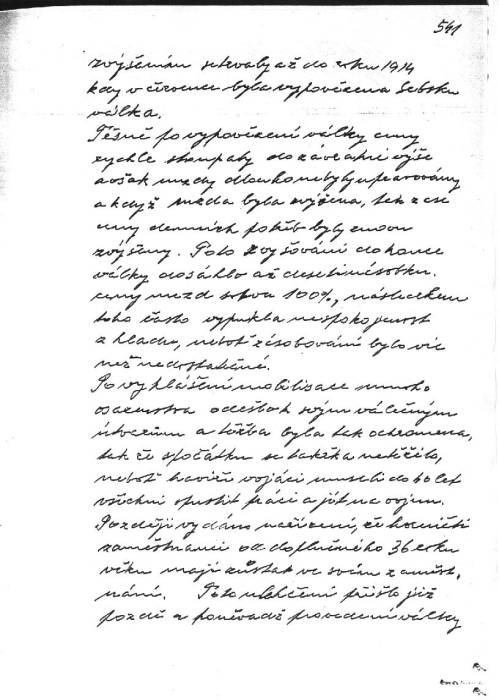 541
zvýšením setrvaly až do roku 1914
kdy v červenci byla vypovězena Srbsku
válka.
Těsně po vypovězení války ceny
rychle stoupaly do závratné výše
avšak mzdy dlouho nebyly upravovány
a když mzda byla zvýšena, tak zase
ceny denních potřeb byly znovu
zvýšeny. Toto zvyšování do konce
války dosáhlo až desetinásobku.
ceny mezd sotva 100%, následkem
toho často vypukla nespokojenost
z hladu, neboť zásobování bylo víc
než nedostatečné.
Po vyhlášení mobilisace mnoho
osazenstva odešlo k svým válečným
útvarům a těžba byla tak ochromena,
tak že zpočátku se takřka netěžilo,
neboť havíři vojáci museli do 60 let
všichni opustit práci a jít na vojnu.
Později vydáno nařízení, že horničtí
zaměstnanci od doplučného 36 roku
věku mají zůstat ve svém zaměst,
nání. Toto ulehčení přišlo již
pozdě a poněvadž provedení války